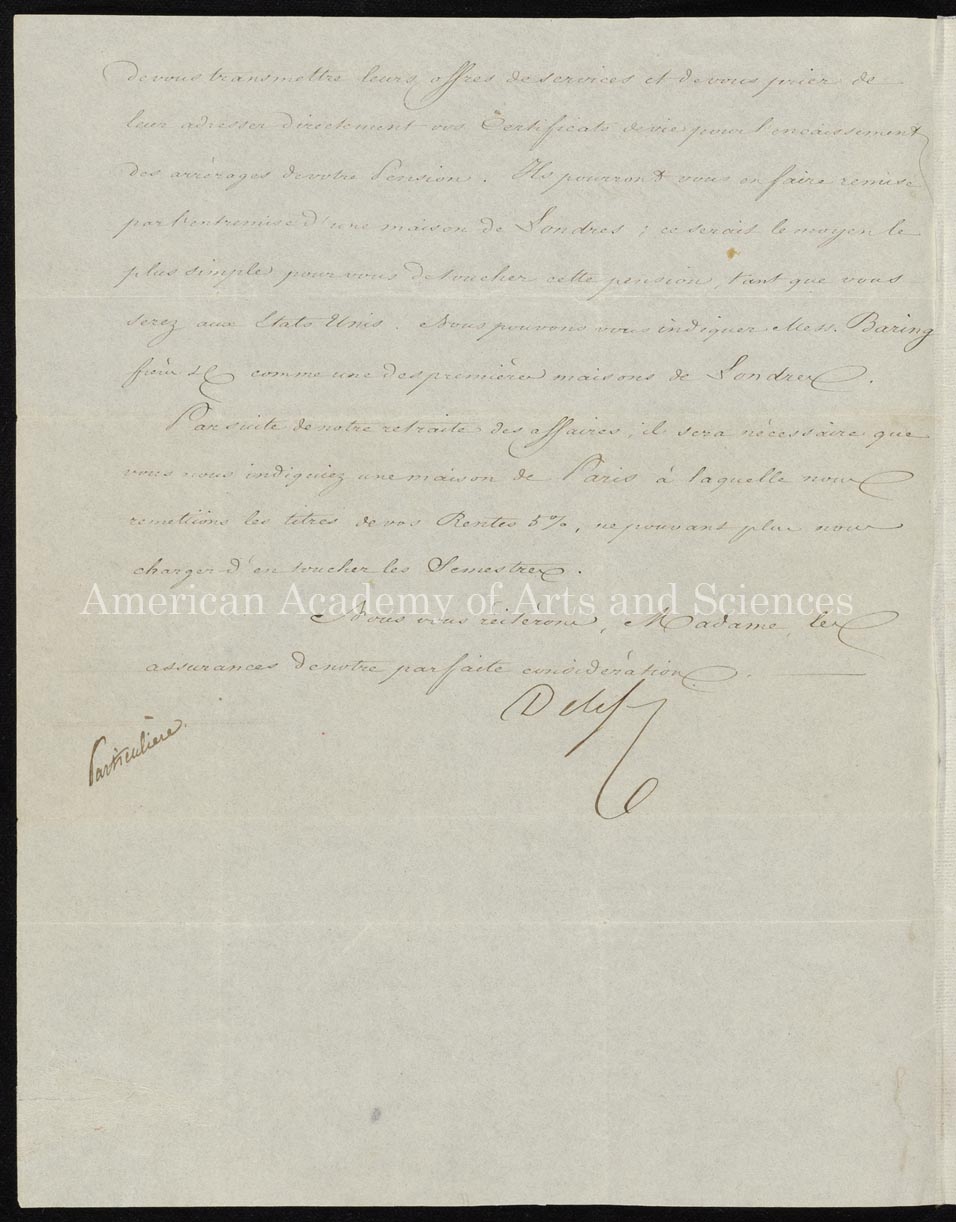 de vous transmettre leurs offres de services et de vous prier de
leur adresser directement vos Certificats de vie pour l'encaissement
des arrérages de votre Pension. Ils pourront vous en faire remise
par l'entremise d'une maison de Londres ; ce serait le moyen le
plus simple pour vous de toucher cette pension, tant que vous
serez aux Etats Unis. Nous pouvons vous indiquer Mess. Baring
frères & C comme une des premières maisons de Londres.
Par suite de notre retraite des affaires, il sera nécessaire que
vous nous indiquiez une maison de Paris à laquelle nous
remettions les titres de vos Rentes 5%, ne pouvant plus nous
charger d'en toucher les Semestres.
American Academy of Arts and Sciences
Nous vous réitérons, Madame, les
assurances de notre parfaite considération.
Particulière.